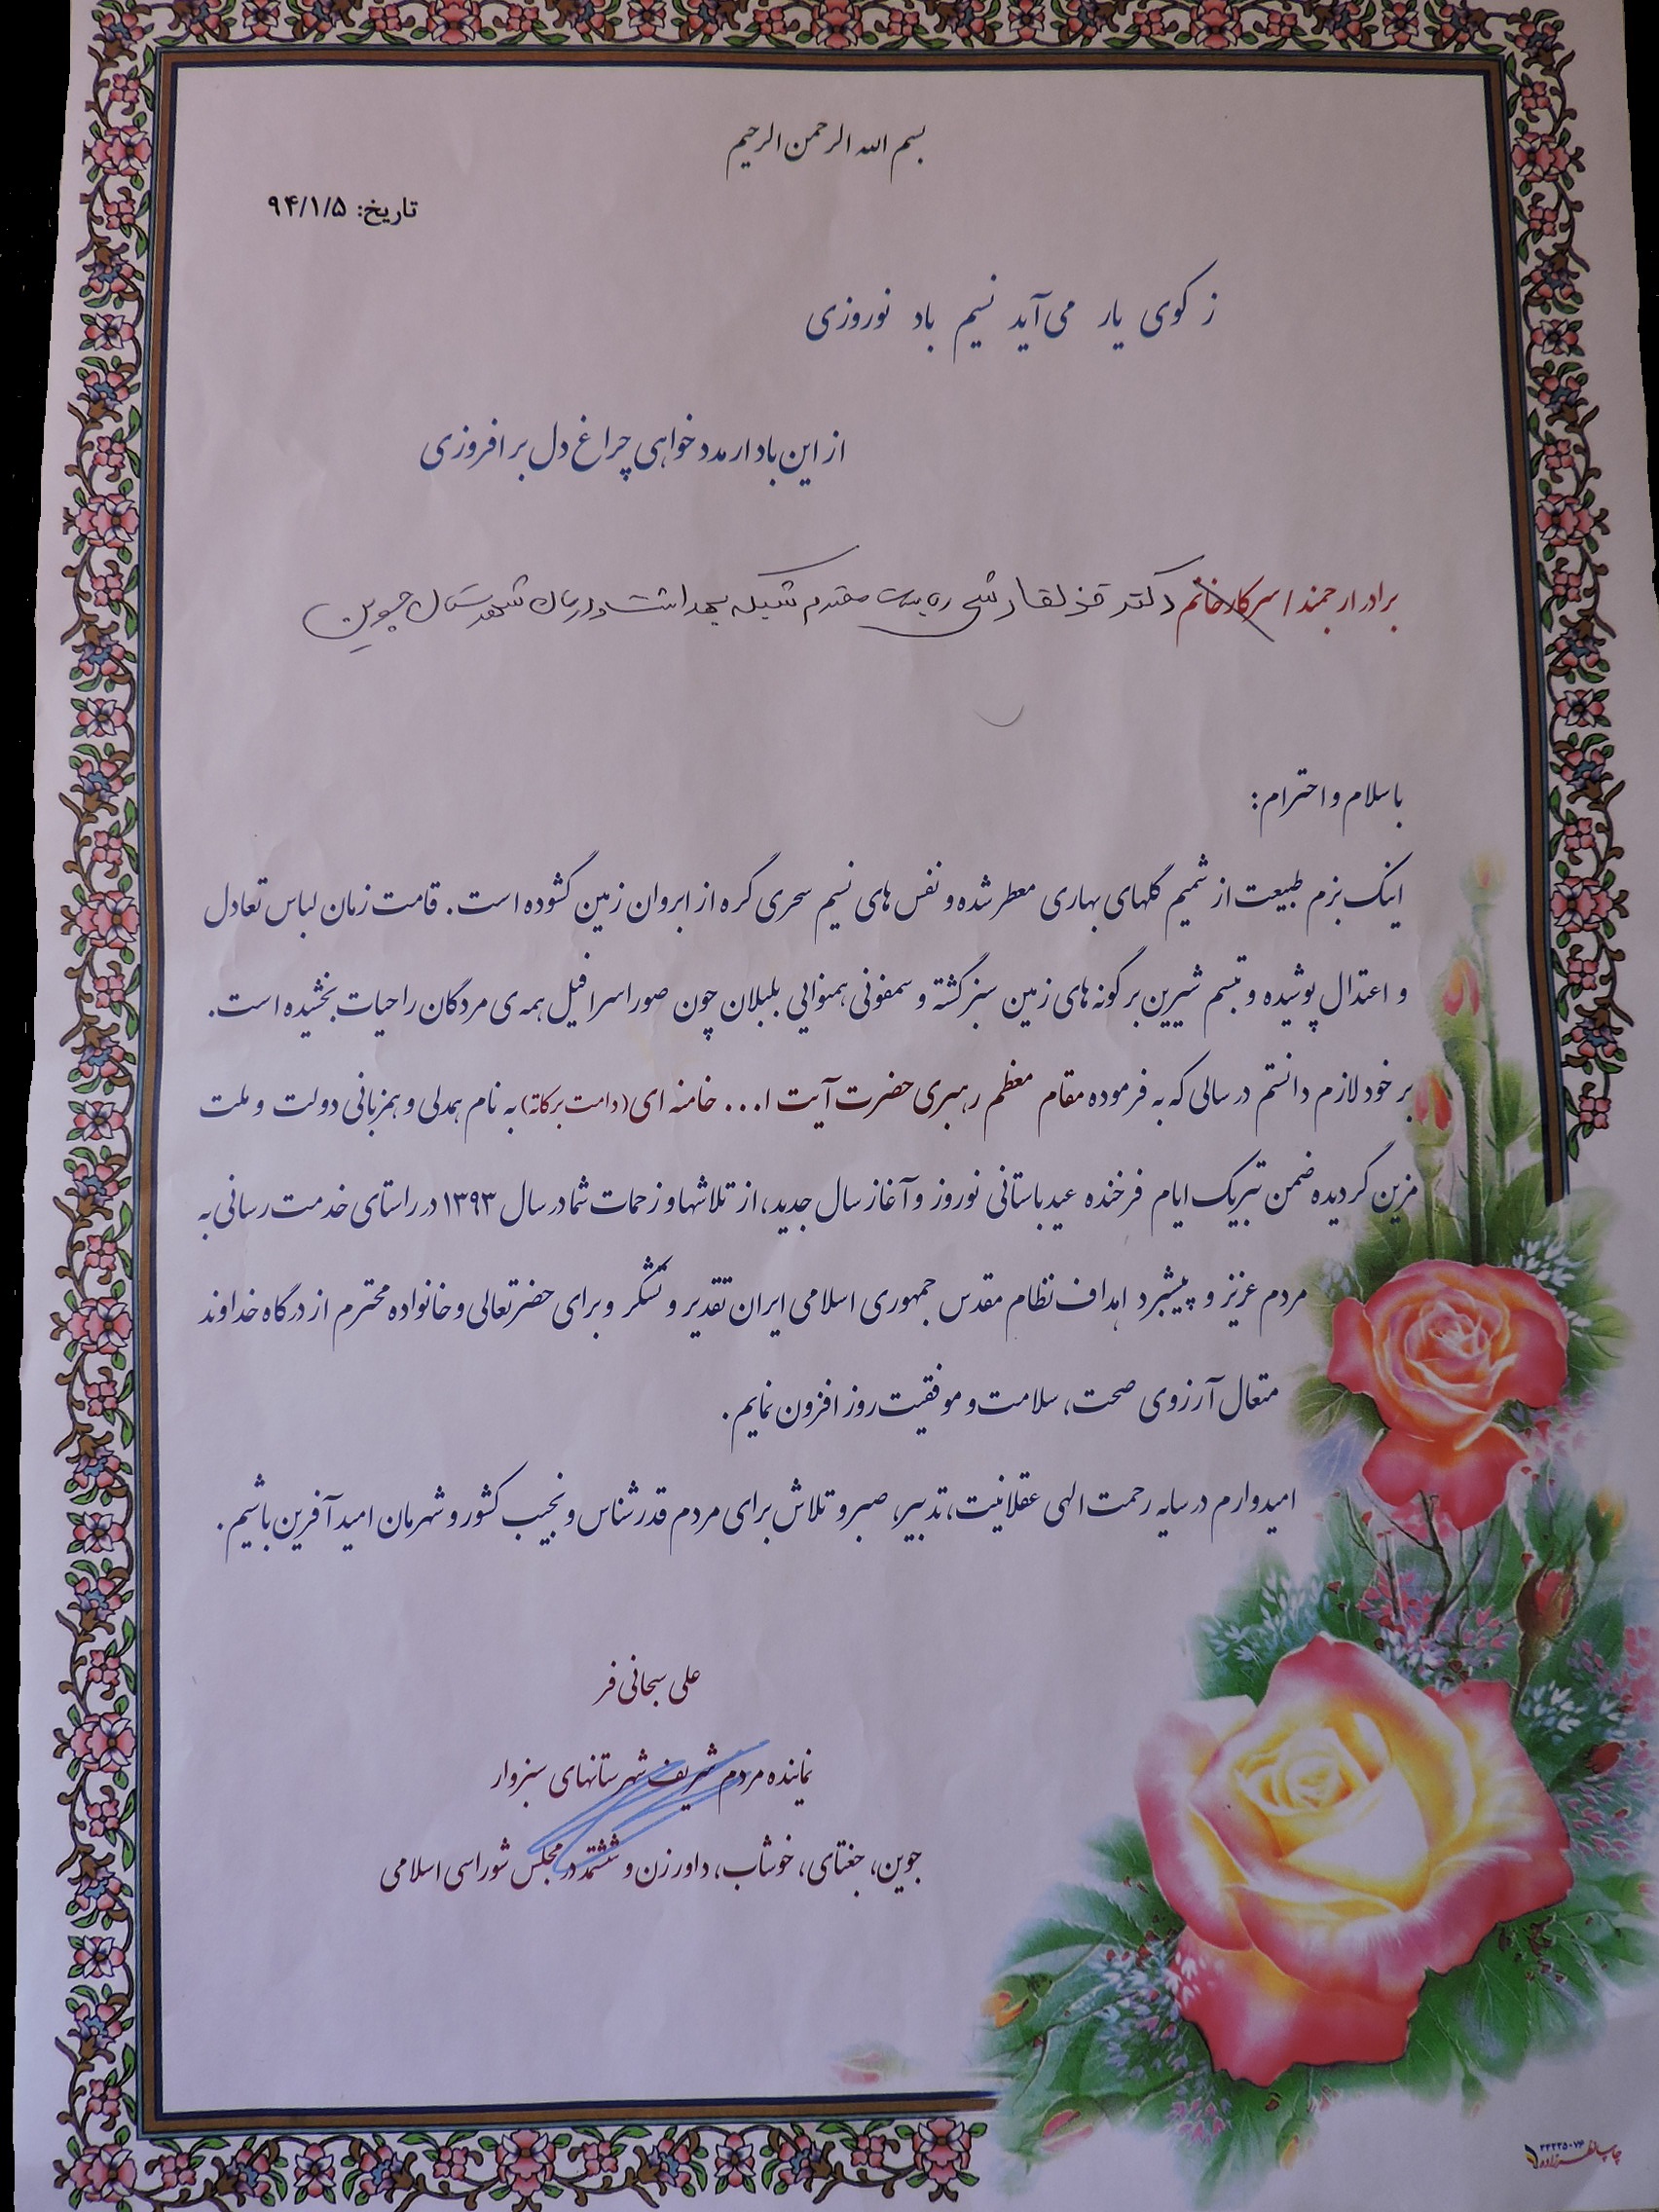 بسم الله الرحمن الرحیم
تاریخ: ۹۴/۱/۵
ز کوی یار می‌آید نسیم باد نوروزی
از این باد ار مدد خواهی چراغ دل برافروزی
برادر ارجمند / سرکار خانم دکتر ریاست محترم شبکه بهداشت و درمان شهرستان جوین
با سلام و احترام:
اینک بزم طبیعت از شمیم گلهای بهاری معطر شده و نفس های نسیم سحری گره از ابروان زمین گشوده است. قامت زمان لباس تعادل
و اعتدال پوشیده و تبسم شیرین بر گونه های زمین سبز گشته و سمفونی همنوایی بلبلان چون صور اسرافیل همه ی مردگان را حیات بخشیده است.
بر خود لازم دانستم در سالی که به فرموده مقام معظم رهبری حضرت آیت ا... خامنه ای (دامت برکاته) به نام همدلی و همزبانی دولت و ملت
مزین گردیده ضمن تبریک ایام فرخنده عید باستانی نوروز و آغاز سال جدید، از تلاشها و زحمات شما در سال ۱۳۹۳ در راستای خدمت رسانی به
مردم عزیز و پیشبرد اهداف نظام مقدس جمهوری اسلامی ایران تقدیر و تشکر و برای حضرتعالی و خانواده محترم از درگاه خداوند
متعال آرزوی صحت، سلامت و موفقیت روز افزون نمایم.
امیدوارم در سایه رحمت الهی عقلانیت، تدبیر، صبر و تلاش برای مردم قدرشناس و نجیب کشور و شهرمان امید آفرین باشیم.
علی سبحانی فر
نماینده مردم شریف شهرستانهای سبزوار
جوین، جغتای، خوشاب، داورزن و ششتمد در مجلس شورای اسلامی